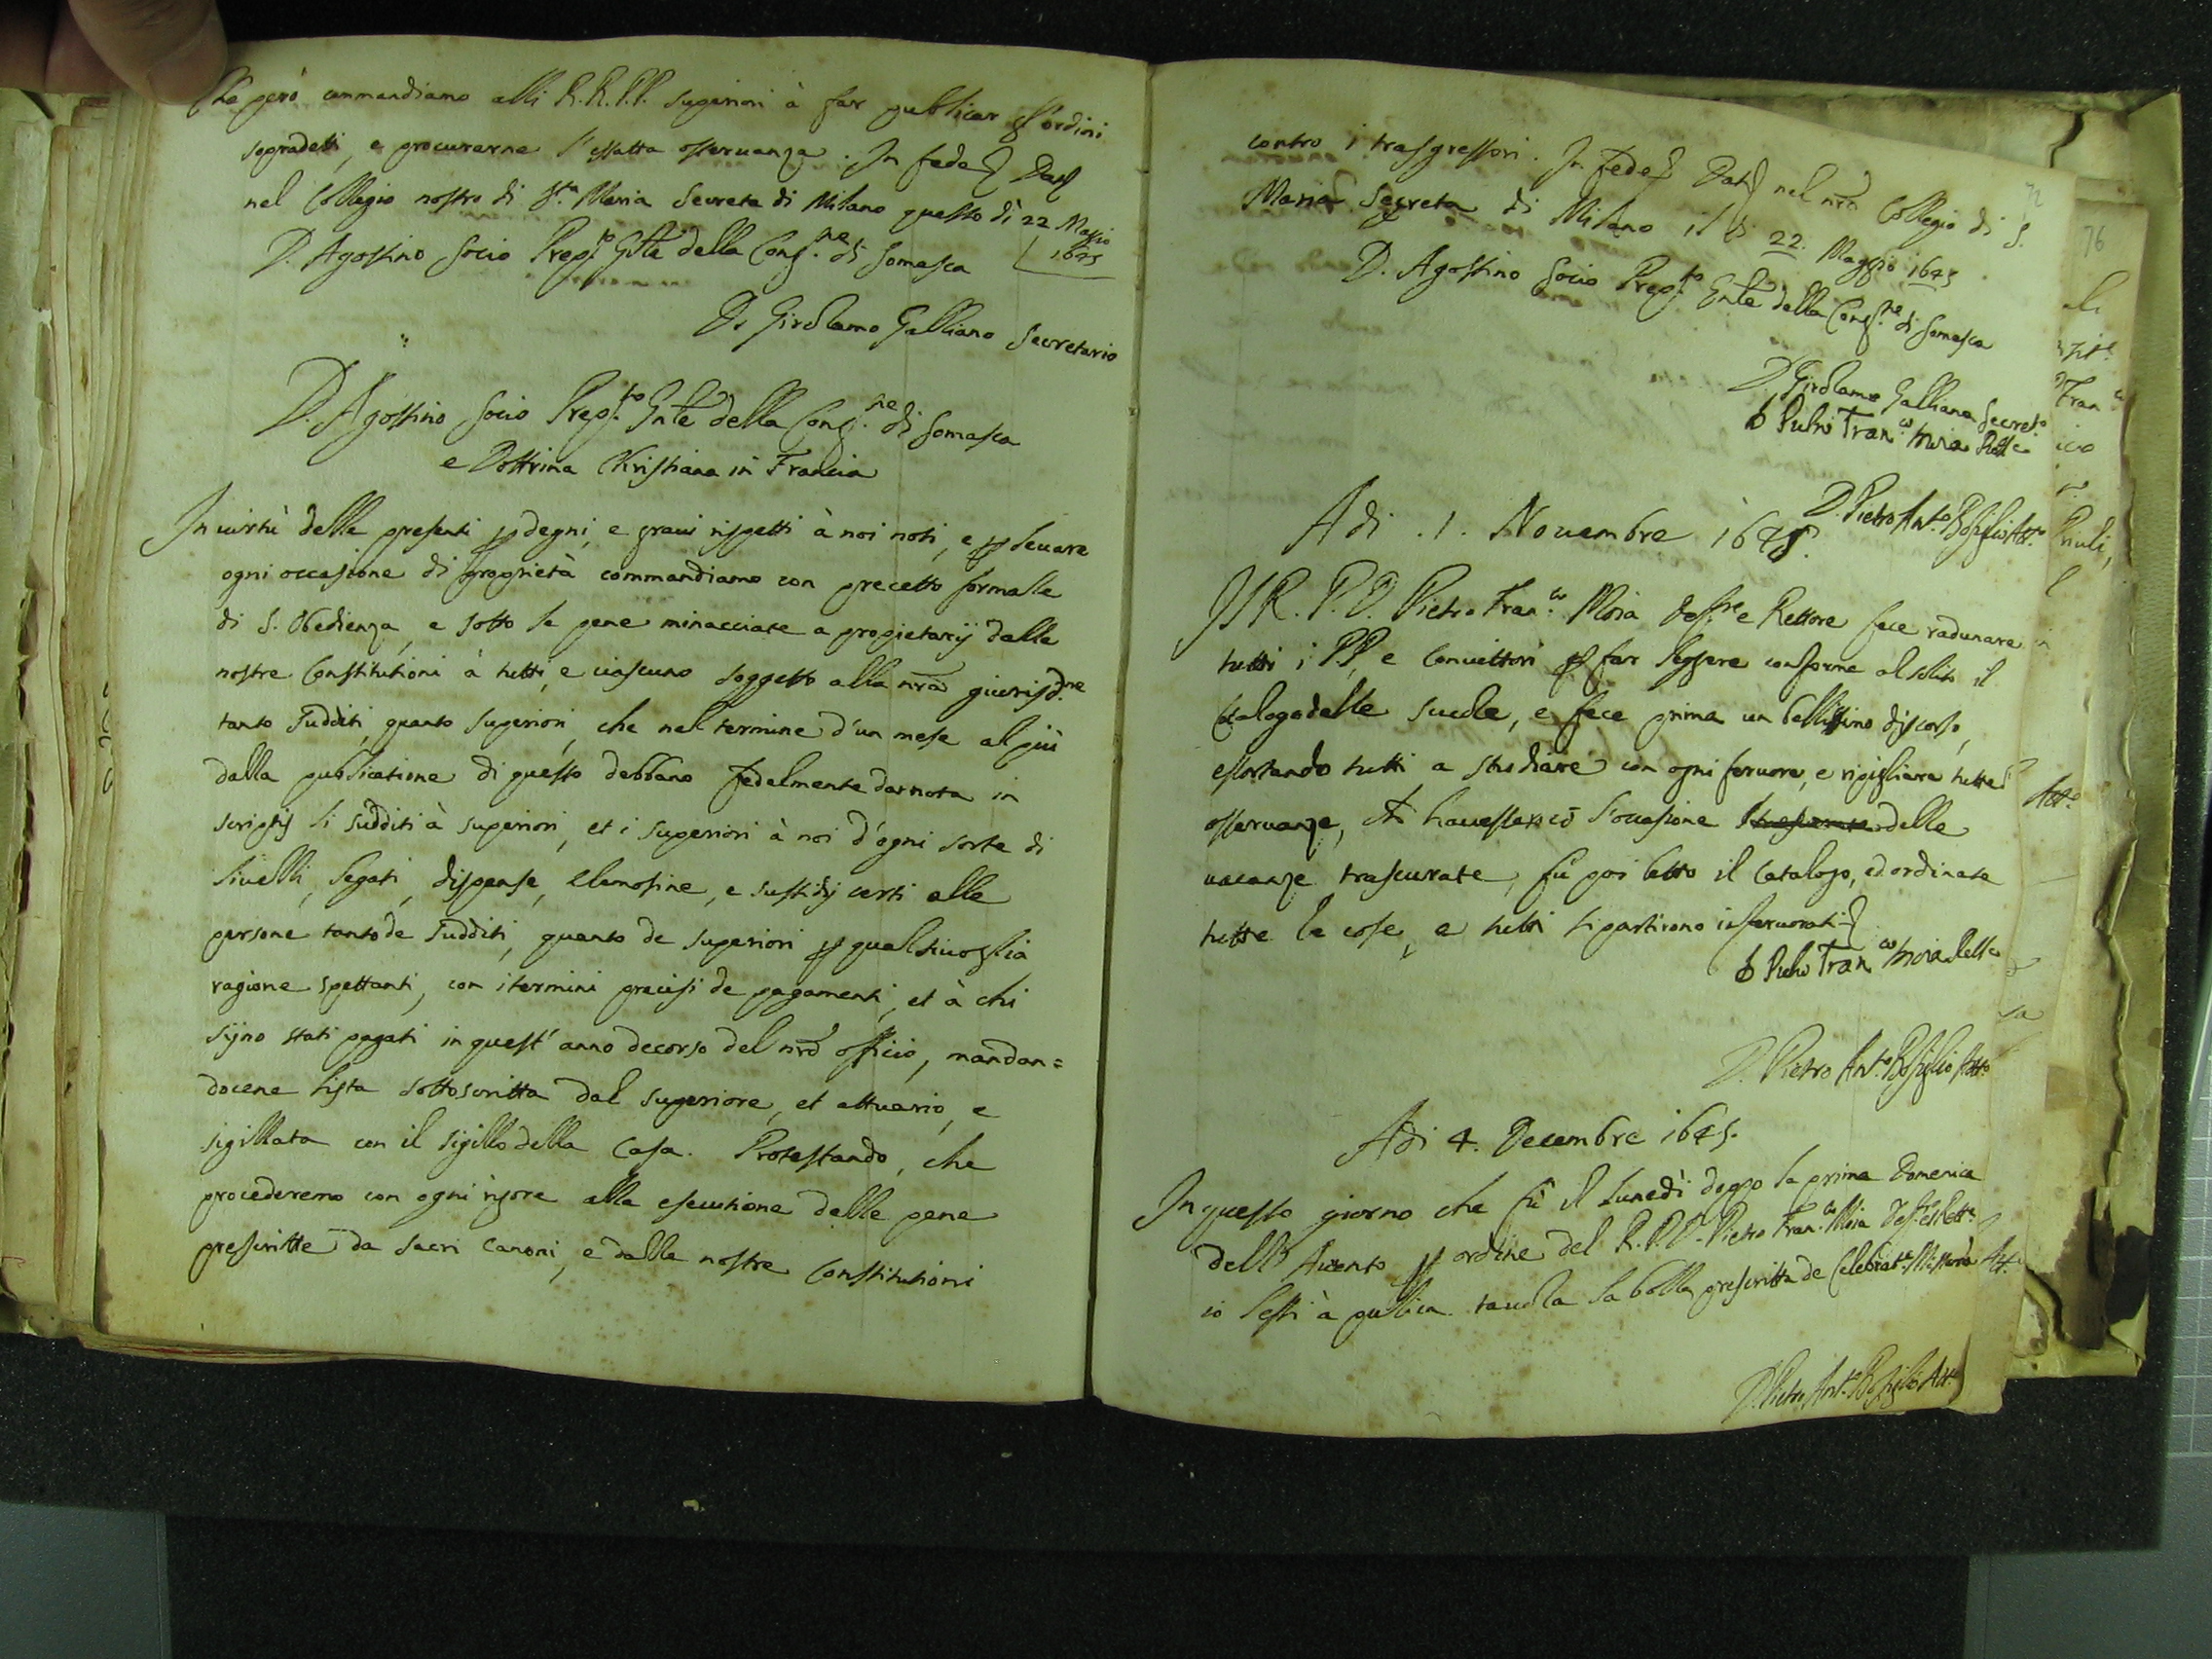 Che però commandiamo alli R.R.P.P. superiori à far publicar gl'ordini
sopradetti, e procurarne l'essatta osseruanza. In fede Dat
nel Collegio nostro di S.ta Maria Secreta di Milano questo dì 22 Maggio
1645
D. Agostino Socio Prep.to Gnle della Cong.ne di Somasca
D. Girolamo Galliano Secretario
D. Agostino Socio Prep.to Gnle della Cong.ne di Somasca
e Dottrina Christiana in Francia
In uirtù delle presenti p degni, e graui rispetti à noi noti, e p leuare
ogni occasione di proprietà commandiamo con precetto formale
di S. Obedienza, e sotto le pene minacciate a propietarij dalle
nostre Constitutioni à tutti, e ciascuno soggetto alla nra giurisd.ne
tanto sudditi, quanto superiori, che nel termine d'un mese al più
dalla publicatione di questo debbano fedelmente dar nota in
scriptis li sudditi à superiori, et i superiori à noi d'ogni sorte di
liuelli, legati, dispense, elemosine, e sussidij certi alle
persone tanto de sudditi, quanto de superiori p qualsiuoglia
ragione spettanti, con i termini precisi de pagamenti, et à chi
sijno stati pagati in quest' anno decorso del nro officio, mandan=
docene lista sottoscritta dal superiore, et attuario, e
sigillata con il sigillo della Casa. Protestando, che
procederemo con ogni rigore alla esecutione delle pene
prescritte da sacri Canoni, e dalle nostre Constitutioni
contro i trasgressori. In fede Dat nel nro Collegio di S.
Maria Segreta di Milano il dì 22. Maggio 1645
D. Agostino Socio Prep.to Gnle della Cong.ne di Somasca
D. Girolamo Galliano Secret.o
D Pietro Fran.co Moia Rett.e
D. Pietro Ant.o Bosiglio Att.o
Adi .1. Nouembre 1645.
Il R. P. D. Pietro Fran.co Moia Def.re e Rettore fece radunare
tutti i PP, e Conuittori p far leggere conforme al solito il
Catalogo delle scuole, e fece prima un bellissimo discorso,
esortando tutti a studiare con ogni feruore, e ripigliare tutte l'
osseruanze, che hauessero cõ l'occasione delle
uacanze trascurate, fù poi letto il Catalogo, ed ordinate
tutte le cose, e tutti si partirono inferuorati
D Pietro Fran.co Moia Rett.e
D. Pietro Ant.o Bosiglio Att.o
Adi 4. Decembre 1645.
In questo giorno che fù il lunedì doppo la prima Domenica
dell'Auento p ordine del R. P. D. Pietro Fran.co Moia Def.re e Rett.e
io lessi à publica tauola la bolla prescritta de Celebrat.e Missarũ
D. Pietro Ant.o Bosiglio Att.o
76